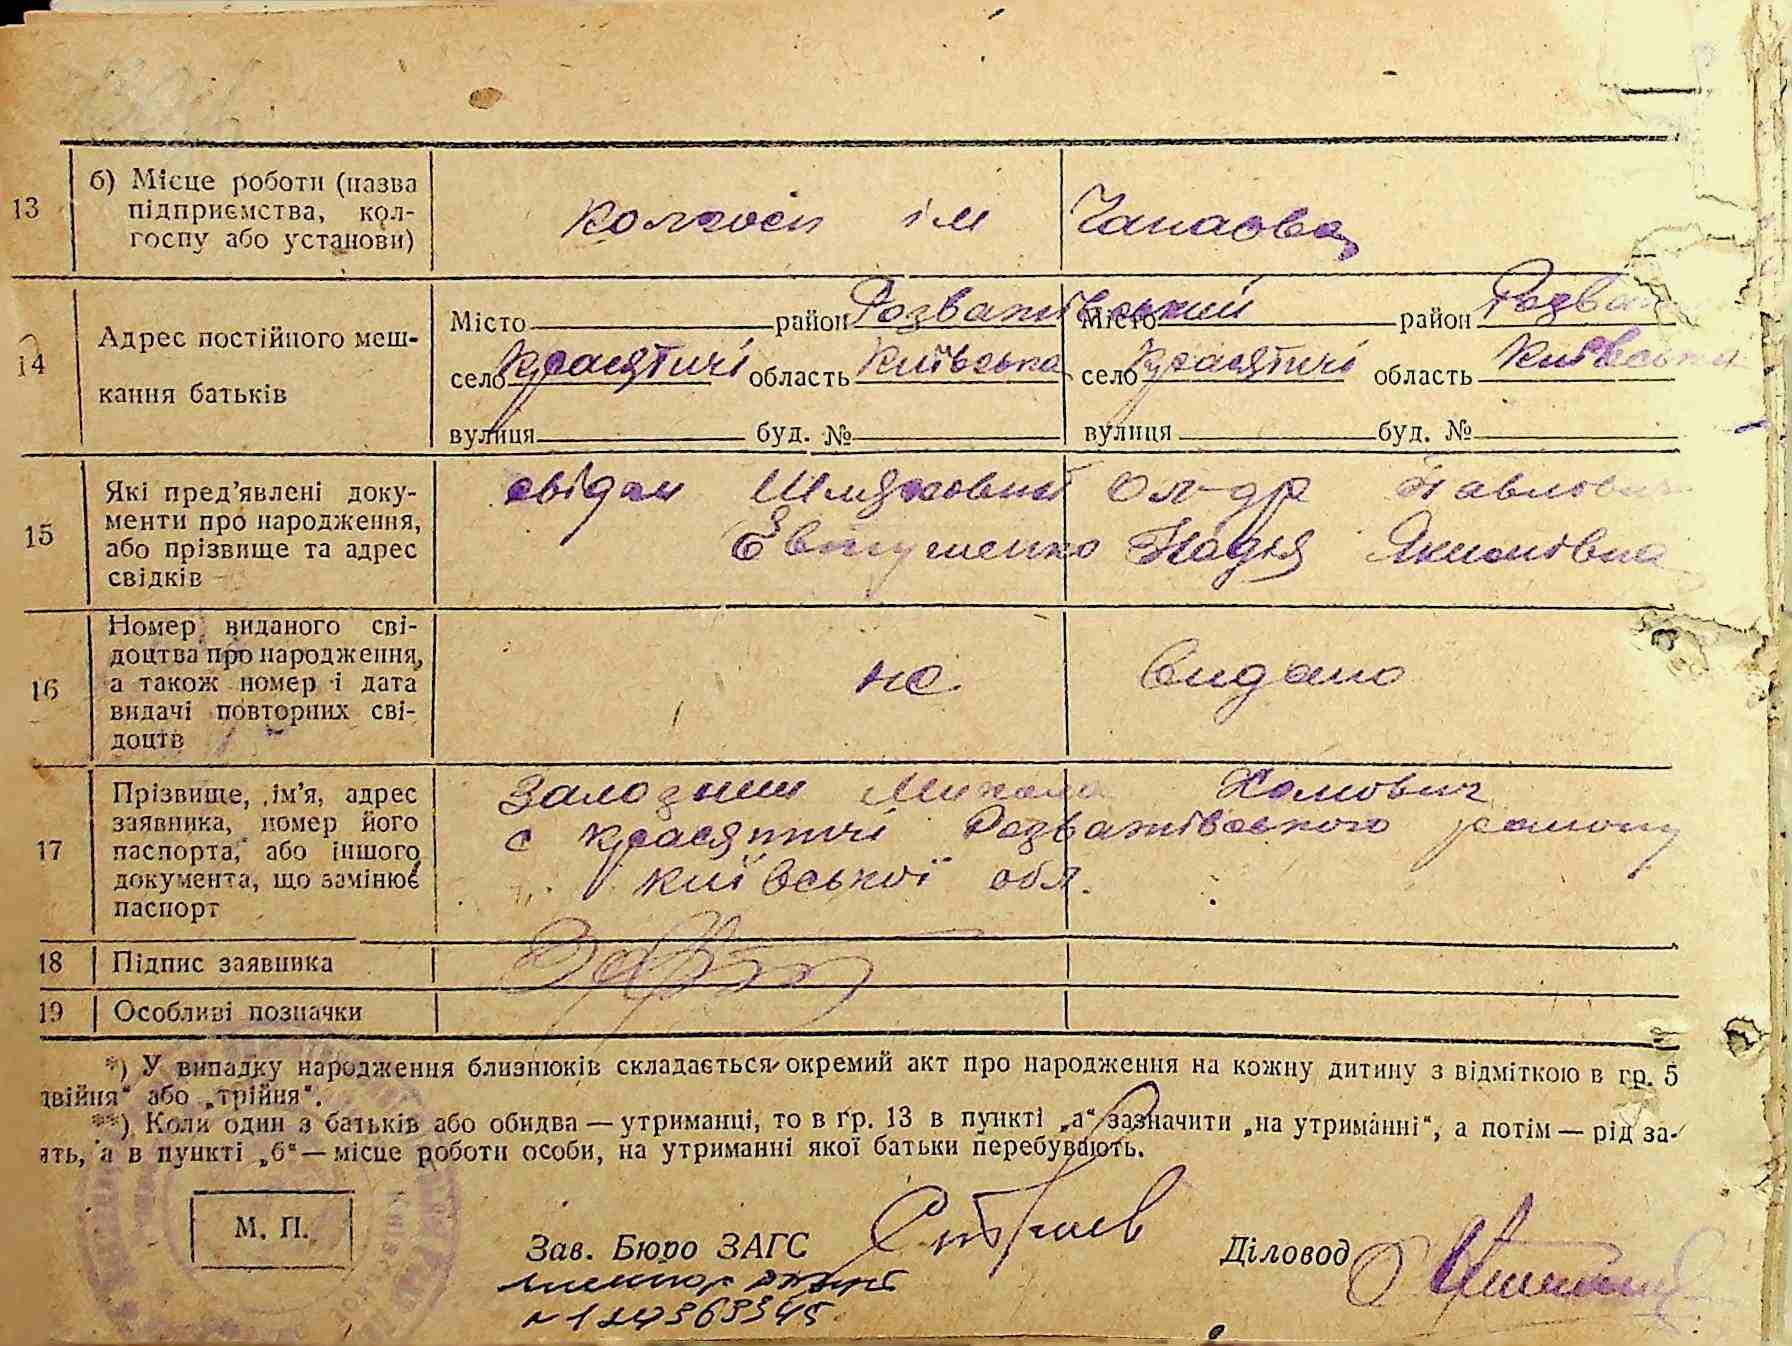 13 б) Місце роботи (назва
підприємства, кол-
госпу або установи)
колгосп ім Чапаєва
14 Адрес постійного меш-
кання батьків
Місто район Розважівський Місто район Розваж
село Красятичі область Київська село Красятичі область Київська
вулиця буд. № вулиця буд. №
15 Які пред'явлені доку-
менти про народження,
або прізвище та адрес
свідків
свідки Шляховий Ол-др Павлович
Євтушенко Надія Якимівна
16 Номер виданого сві-
доцтва про народження,
а також номер і дата
видачі повторних сві-
доцтв
не видано
17 Прізвище, ім'я, адрес
заявника, номер його
паспорта, або іншого
документа, що замінює
паспорт
Залозний Микола Хомович
с Красятичі Розважівського району
Київської обл.
18 Підпис заявника
19 Особливі позначки
*) У випадку народження близнюків складається окремий акт про народження на кожну дитину з відміткою в гр. 5
двійня" або „трійня".
**) Коли один з батьків або обидва — утриманці, то в гр. 13 в пункті „а" зазначити „на утриманні", а потім — рід за-
ять, а в пункті „б" — місце роботи особи, на утриманні якої батьки перебувають.
М. П.
Зав. Бюро ЗАГС
Діловод